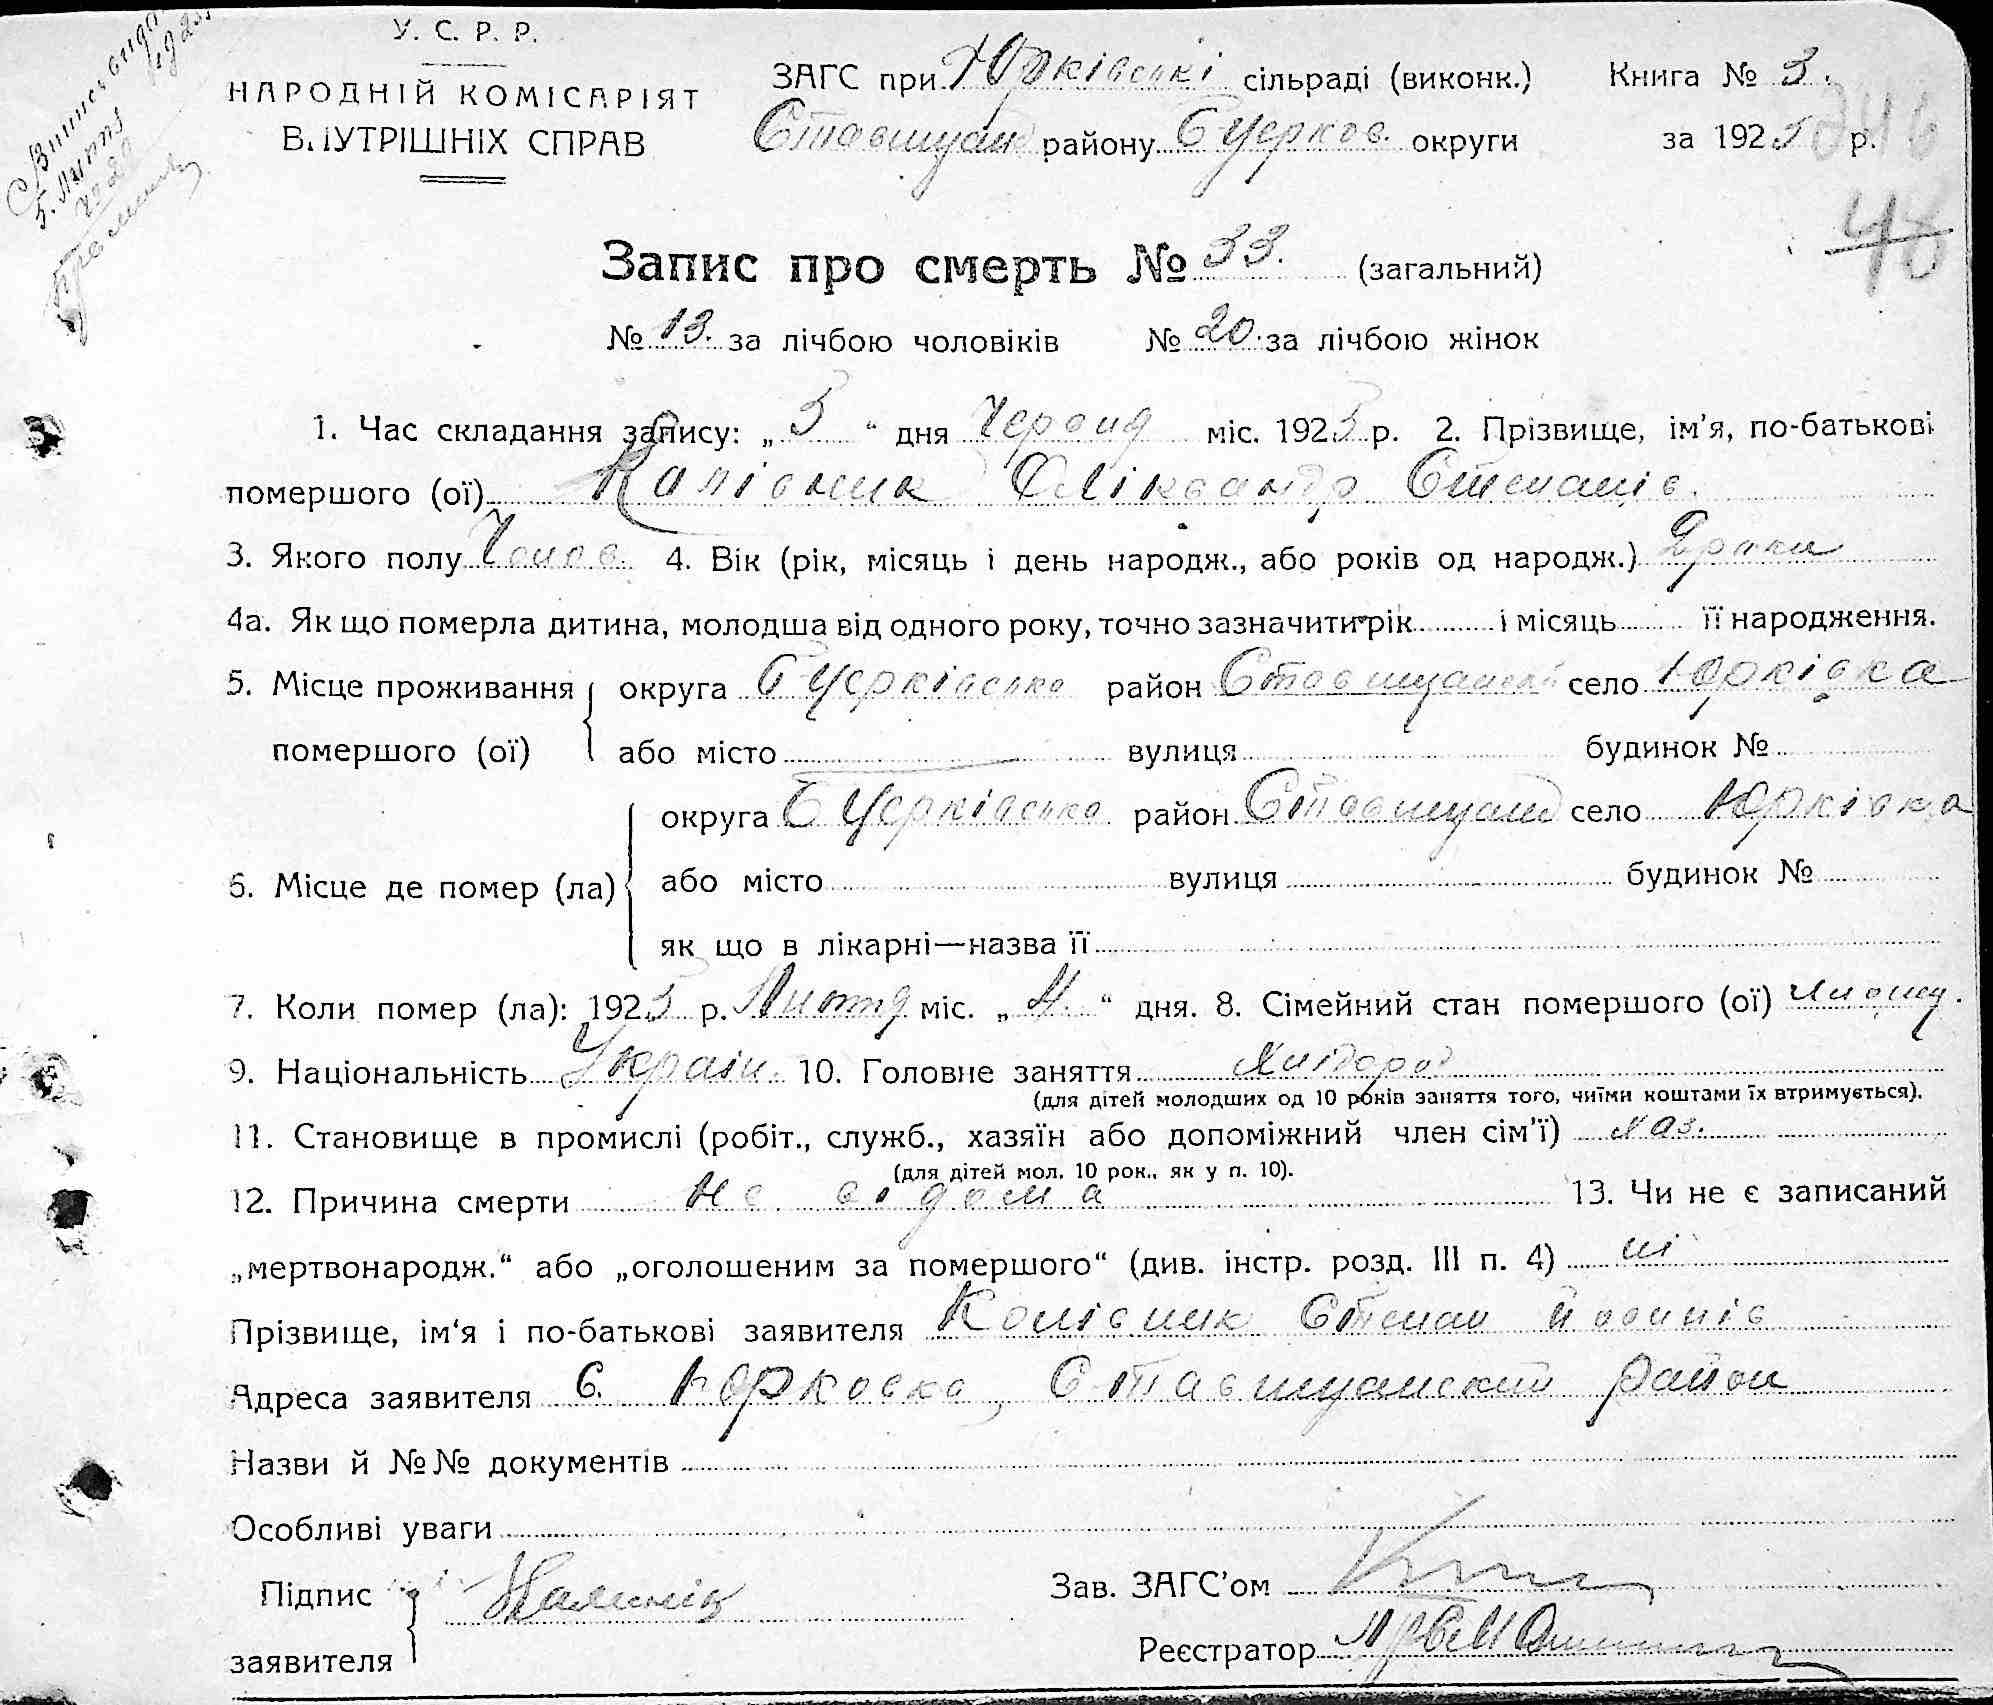 У. С. Р. Р.
НАРОДНІЙ КОМІСАРІЯТ
ВНУТРІШНІХ СПРАВ
ЗАГС при Юрківські сільраді (виконк.) Книга № 3.
Ставищан району Б Церков. округи за 1925 р.
246
48
Запис про смерть № 33. (загальний)
№ 13. за лічбою чоловіків № 20. за лічбою жінок
1. Час складання запису: „ 3 “ дня Червня міс. 1925 р. 2. Прізвище, ім'я, по-батькові
помершого (ої) Колісник Оліксандр Степанів.
3. Якого полу Чолов. 4. Вік (рік, місяць і день народж., або років од народж.) 2 роки
4а. Як що померла дитина, молодша від одного року, точно зазначити рік і місяць її народження.
5. Місце проживання округа Б Церківсько район Ставищанськ село Юрківка
помершого (ої) або місто вулиця будинок №
округа Б Церківсько район Ставищан село Юрківка
6. Місце де помер (ла) або місто вулиця будинок №
як що в лікарні—назва її
7. Коли помер (ла): 1925 р. Лютня міс. „ 4. “ дня. 8. Сімейний стан помершого (ої)
9. Національність Україн. 10. Головне заняття Хлібороб
(для дітей молодших од 10 років заняття того, чиїми коштами їх втримується).
11. Становище в промислі (робіт., служб., хазяїн або допоміжний член сім'ї) хаз.
(для дітей мол. 10 рок., як у п. 10).
12. Причина смерти не відома 13. Чи не є записаний
„мертвонародж.“ або „оголошеним за помершого“ (див. інстр. розд. III п. 4) ні
Прізвище, ім'я і по-батькові заявителя Колісник Степан
Адреса заявителя С. Юрковка, Ставищанский район
Назви й №№ документів
Особливі уваги
Підпис
заявителя
Зав. ЗАГС'ом
Реєстратор